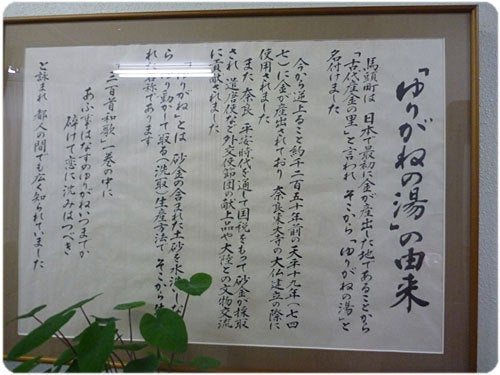 「ゆりがねの湯」の由来
馬頭町は 日本で最初に金が産出した地であることから
「古代産金の里」と言われ そこから「ゆりがねの湯」と
名付けました
今から逆上ること約千二百五十年前の天平十九年(七四
七)に金が産出されており 奈良東大寺の大仏建立の際に
使用されました
また 奈良・平安時代を通して国税をもって砂金が採取
され 遣唐使など外交使節団の献上品や大陸との文物交流
に貢献されました
「ゆりがね」とは 砂金の含まれた土砂を水流しな
ら ゆり動かして取る(洗取)生産方法で そこから
れた名称であります
「三百首和歌」一巻の中に
あふ事はなすのゆりがねいつまでか
砕けて恋に沈みはつべき
と詠まれ 都人の間でも広く知られていました